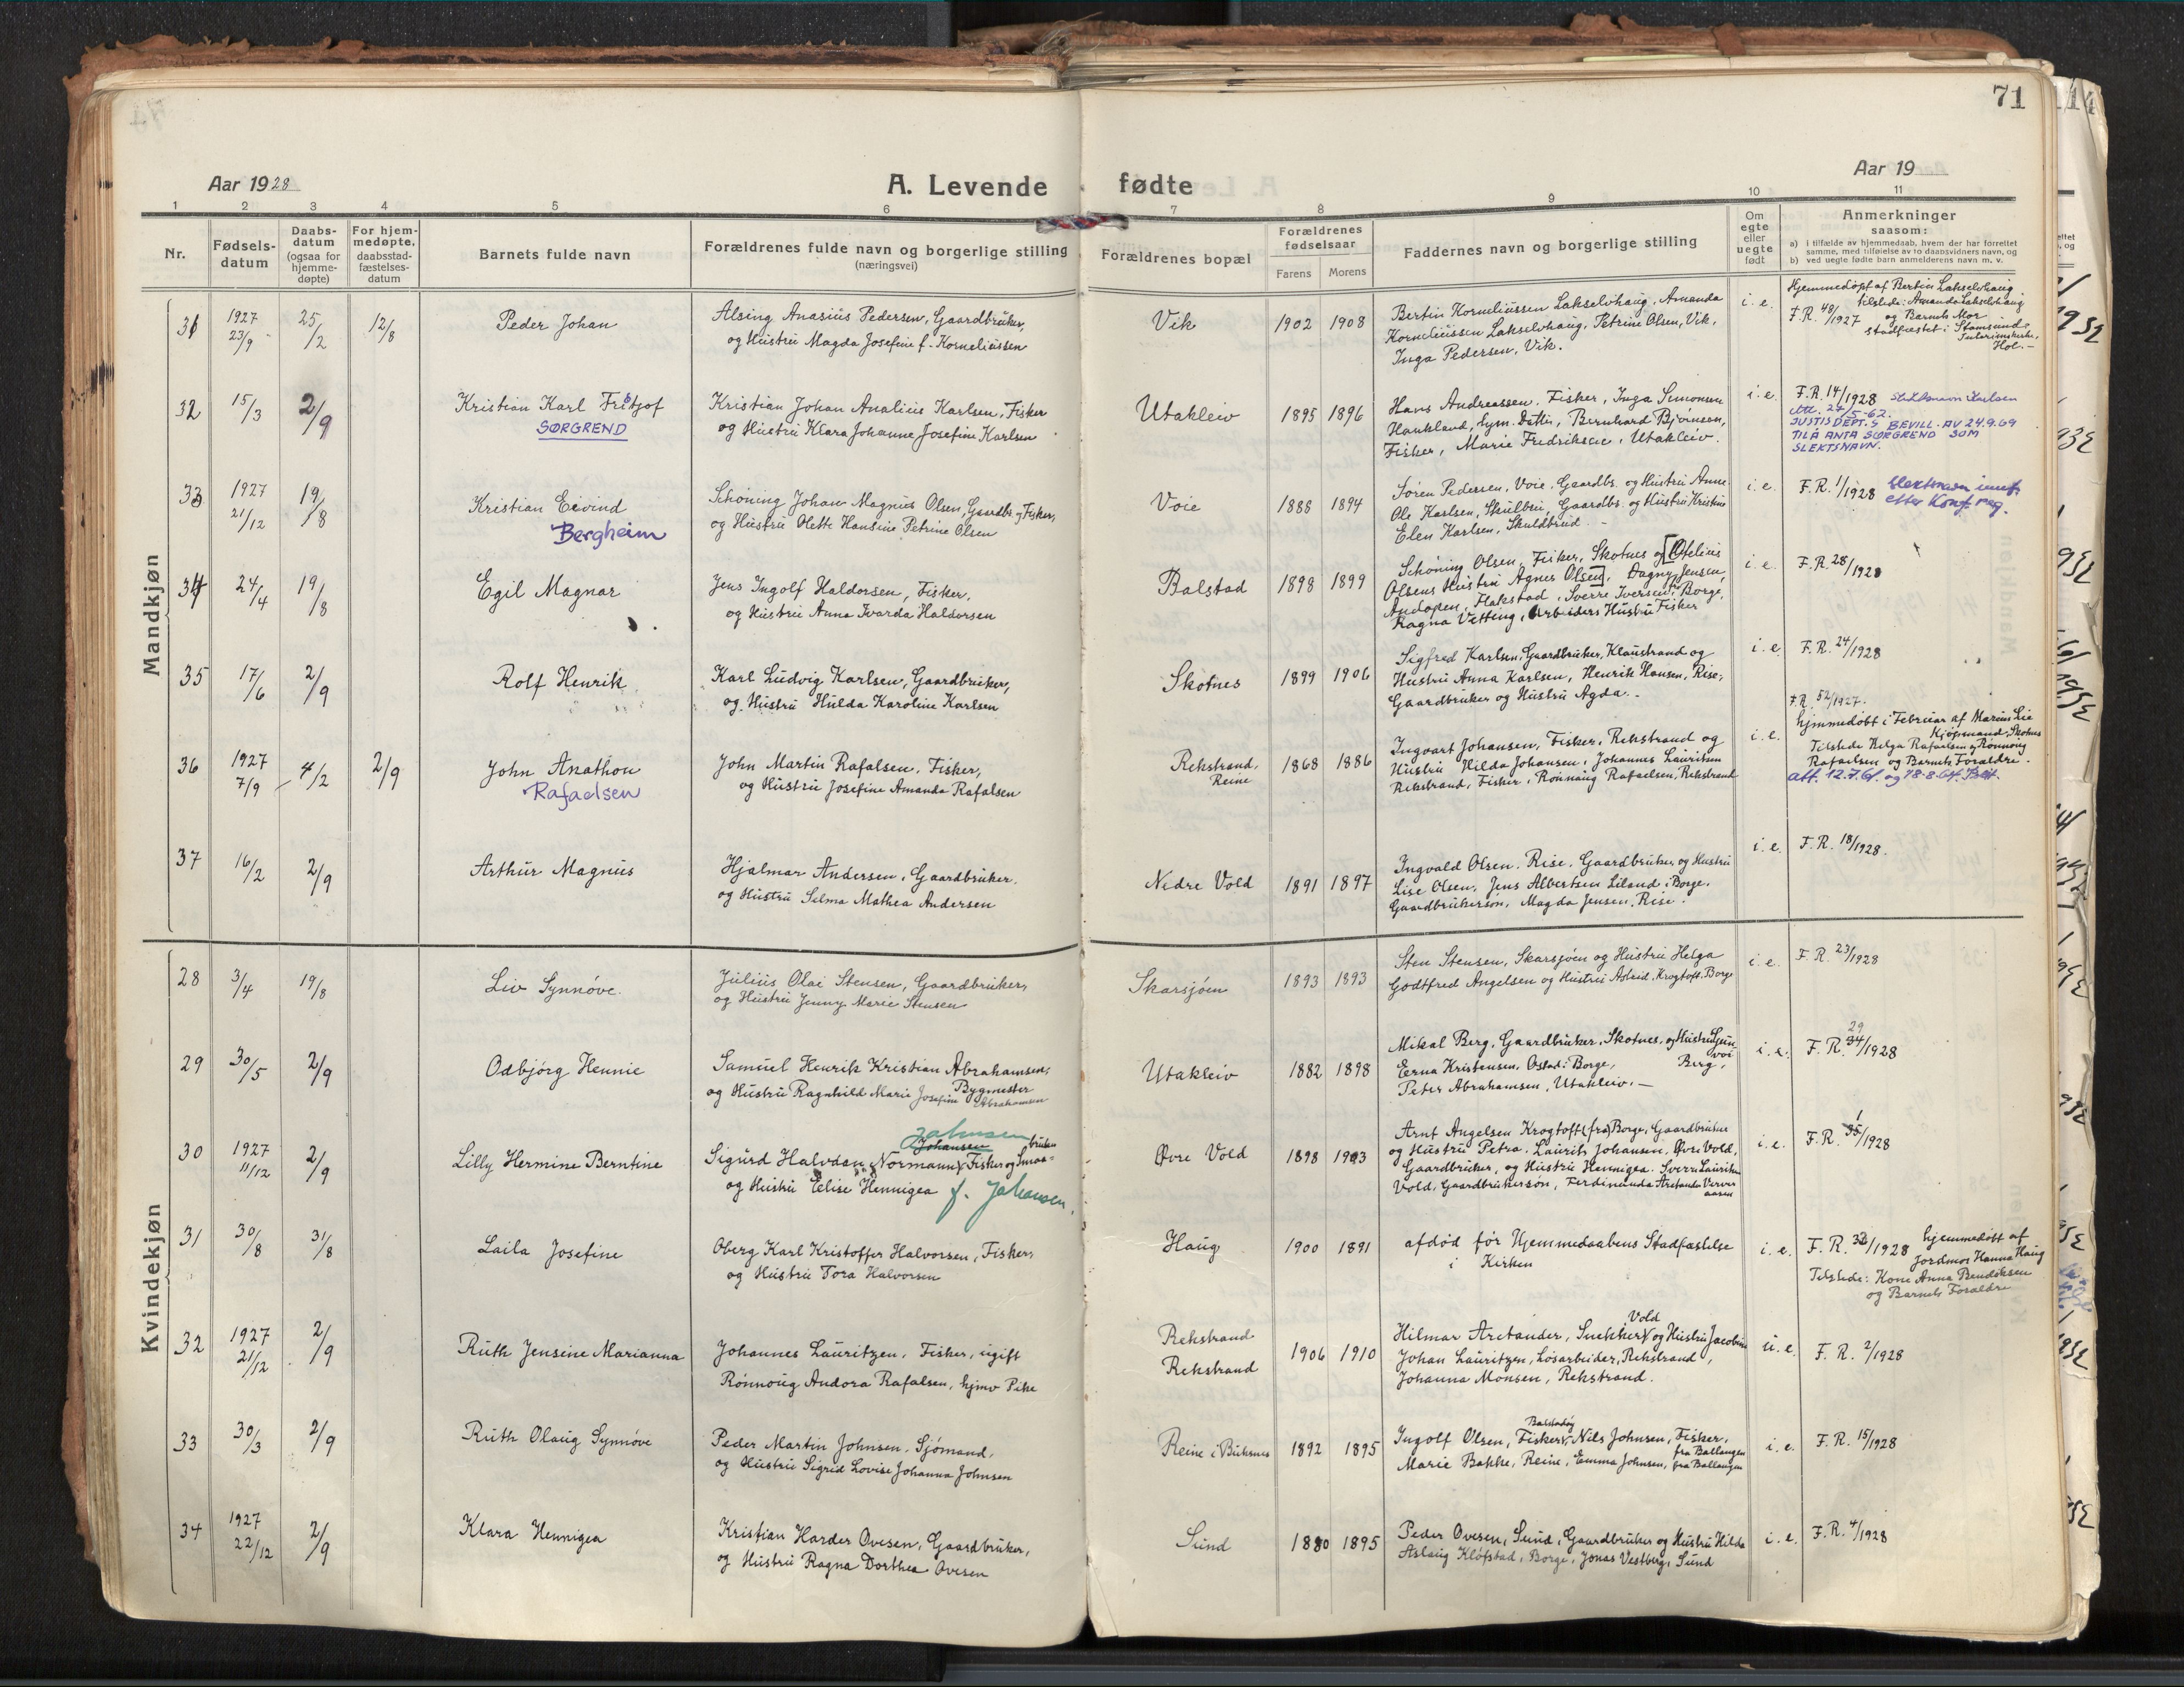 71
Aar 1928
A. Levende fødte
Aar 19
1 2 3 4 5 6 7 8 9 10 11
Nr.
Fødsels-
datum
Daabs-
datum
(ogsaa for
hjemme-
døpte)
For hjem-
medøpte,
daabsstad-
fæstelses-
datum
Barnets fulde navn
Forældrenes fulde navn og borgerlige stilling
(næringsvei)
Forældrenes bopæl
Forældrenes
fødselsaar
Farens Morens
Faddernes navn og borgerlige stilling
Om
egte
eller
uegte
født
Anmerkninger
saasom:
a) i tilfælde av hjemmedaab, hvem der har forrettet
samme, med tilføielse av to daabsvidners navn, og
b) ved uegte fødte barn anmelderens navn m. v.
Mandkjøn
31
1927
23/9
25/2
12/8
Peder Johan
Alsing Anasius Pedersen, Gaardbruker,
og Hustru Magda Josefine f. Korneliussen
Vik
1902 1908
Bertin Korneliussen Lakselvhaug, Amanda
Korneliussen Lakselvhaug, Petrine Olsen, Vik,
Inga Pedersen, Vik.
i.e.
Hjemmedøpt af Bertin Lakselvhaug
tilstede: Amanda Lakselvhaug
F.R. 48/1927 og Barnets Mor
stadfæstet i Stamsund
Interimskirke,
Hol.-
32
15/3
2/9
Kristian Karl Fritjof
SØRGREND
Kristian Johan Analius Karlsen, Fisker
og Hustru Klara Johanne Josefine Karlsen
Utakleiv
1895 1896
Hans Andreassen, Fisker, Inga Simonsen
Haukland, Gym. Datter, Bernhard Bjørnsen,
Fisker, Marie Fredriksen, Utakleiv.
i.e.
F.R. 14/1928 Slektsnavn Karlsen
Att. 24/5-62.
JUSTISDEPT.S BEVILL. AV 24.9.69
TIL Å ANTA SØRGREND SOM
SLEKTSNAVN.
33
1927
21/12
19/8
Kristian Eivind
Bergheim
Schöning Johan Magnus Olsen, Gaardbr. og Fisker,
og Hustru Olette Hansine Petrine Olsen
Voie
1888 1894
Søren Pedersen, Voie, Gaardbr. og Hustru Anne
Ole Karlsen, Skulbru, Gaardbr. og Hustru Kristine
Elen Karlsen, Skuldbrud.
i.e.
F.R. 1/1928 Slektsnavn innf.
etter Konf. reg.
34
24/4
19/8
Egil Magnar
Jens Ingolf Haldorsen, Fisker,
og Hustru Anna Ivarda Haldorsen
Balstad
1898 1899
Schöning Olsen, Fisker, Skotnes og [Otelius
Olsens Hustru Agnes Olsen], Dagny Jensen,
Andopen, Flakstad, Sverre Iversen, Borge,
Ragna Vetting, Arbeiders Hustru Fisker
i.e.
F.R. 28/1928
35
17/6
2/9
Rolf Henrik
Karl Ludvig Karlsen, Gaardbruker,
og Hustru Hulda Karoline Karlsen
Skotnes
1899 1906
Sigfred Karlsen, Gaardbruker, Klaustrand og
Hustru Anna Karlsen, Henrik Hansen, Rise,
Gaardbruker og Hustru Agda.-
i.e.
F.R. 24/1928
36
1927
7/9
4/2
2/9
John Anathon
Rafaelsen
John Martin Rafalsen, Fisker,
og Hustru Josefine Amanda Rafalsen
Rekstrand,
Reine
1868 1886
Ingvart Johansen, Fisker, Rekstrand og
Hustru Hilda Johansen, Johannes Lauritsen
Rekstrand, Fisker, Rønnaug Rafaelsen, Rekstrand
i.e.
F.R. 52/1927.
hjemmedøbt i Februar af Marius Lie
Kjøpmand, Skotnes
Tilstede Helga Rafaelsen og Rønnoug
Rafaelsen og Barnets Foraldre.
att. 12.7.61. og 18-8-64.
37
16/2
2/9
Arthur Magnus
Hjalmar Andersen, Gaardbruker.
og Hustru Selma Mathea Andersen
Nedre Vold
1891 1897
Ingvald Olsen, Rise, Gaardbruker og Hustru
Lise Olsen, Jens Albertsen Liland i Borge,
Gaardbrukersøn, Magda Jensen, Rise.
i.e.
F.R. 18/1928.
Kvindekjøn
28
3/4
19/8
Liv Synnøve.
Julius Olai Stensen, Gaardbruker,
og Hustru Jenny Marie Stensen
Skarsjøen
1893 1893
Sten Stensen, Skarsjøen og Hustru Helga
Godtfred Angelsen og Hustru Astrid, Krogtoft, Borge
i.e.
F.R. 23/1928
29
30/5
2/9
Odbjørg Hennie
Samuel Henrik Kristian Abrahamsen,
Bygmester
og Hustru Ragnhild Marie Josefine Abrahamsen
Utakleiv
1882 1898
Mikal Berg, Gaardbruker, Skotnes, og Hustru Gun
voi
Erna Kristensen, Ostad i Borge, Berg,
Peter Abrahamsen, Utakleiv.-
i.e.
29
F.R. 34/1928
30
1927
11/12
2/9
Lilly Hermine Berntine
Johnsen
Johansen bruker
Sigurd Halvdan Normann, Fisker og Smaa-
og Hustru Elise Hennigea f. Johansen.
Øvre Vold
1898 1903
Arnt Angelsen Krogtoft (fra) Borge, Gaardbruker
og Hustru Petra. Laurits Johansen, Øvre Vold,
Gaardbruker, og Hustru Hennigea. Sverre Lauritsen
Vold, Gaardbrukersøn, Ferdinanda Aretander
i.e.
1
F.R. 35/1928
31
30/8
31/8
Laila Josefine
Oberg Karl Kristoffer Halvorsen, Fisker,
og Hustru Tora Halvorsen
Haug
1900 1891
afdød før Hjemmedaabens Stadfæstelse
i Kirken
i.e.
F.R. 32/1928 hjemmedøbt af
Jordmor Hanna Haug
Tilstede: Kone Anna Bendiksen
og Barnets Foraldre
32
1927
21/12
2/9
Ruth Jensine Marianna
Johannes Lauritzen, Fisker, ugift
Rønnoug Andora Rafalsen, hjmv Pike
Rekstrand
Rekstrand
1906 1910
Vold
Hilmar Aretander, Snekker, og Hustru Jacobine
Johan Lauritzen, Løsarbeider, Rekstrand,
Johanna Monsen, Rekstrand.
u.e.
F.R. 2/1928
33
30/3
2/9
Ruth Olaug Synnøve
Peder Martin Johnsen, Sjømand,
og Hustru Sigrid Lovise Johanna Johnsen
Reine i Buksnes
1892 1895
Balstadøy
Ingolf Olsen, Fisker, Nils Johnsen, Fisker,
fra Ballangen
Marie Bakke, Reine, Emma Johnsen, fra Ballangen
i.e.
F.R. 15/1928
34
1927
22/12
2/9
Klara Hennigea
Kristian Harder Ovesen, Gaardbruker,
og Hustru Ragna Dorthea Ovesen
Sund
1880 1895
Peder Ovesen, Sund, Gaardbruker og Hustru Hilda
Aslaug Kløfstad, Borge, Jonas Vestberg, Sund
i.e.
F.R. 4/1928